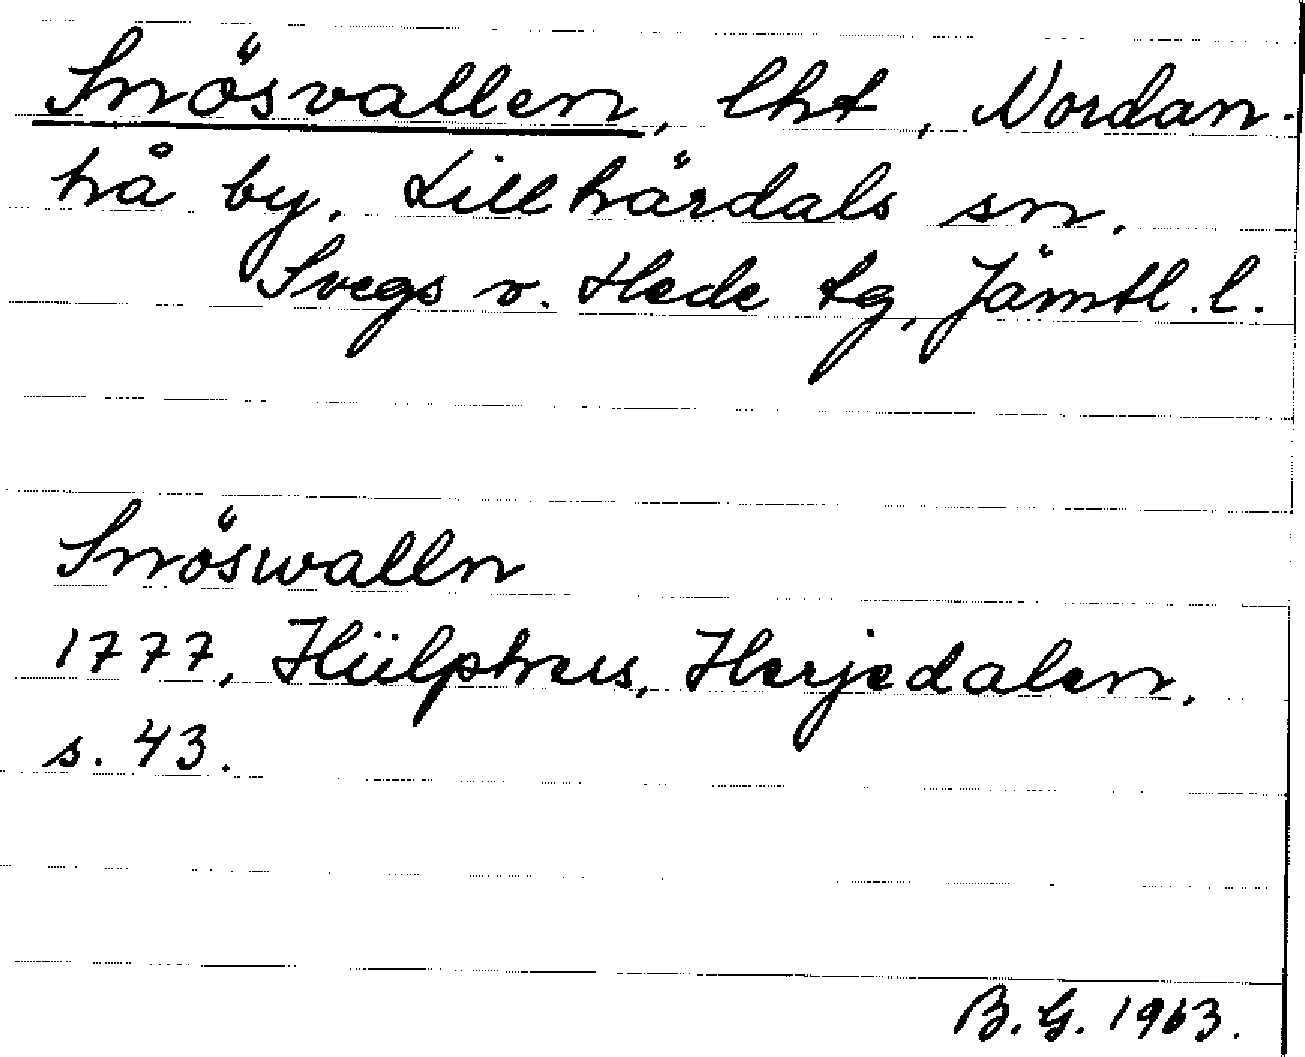 Snösvallen, lht, Nordan-
hå by. Lillhärdals sn.
Svegs o. Hede tg, Jämtl. l.
Snöswalln
1777, Hülphers, Herjedalen,
s. 43.
B. G. 1963.